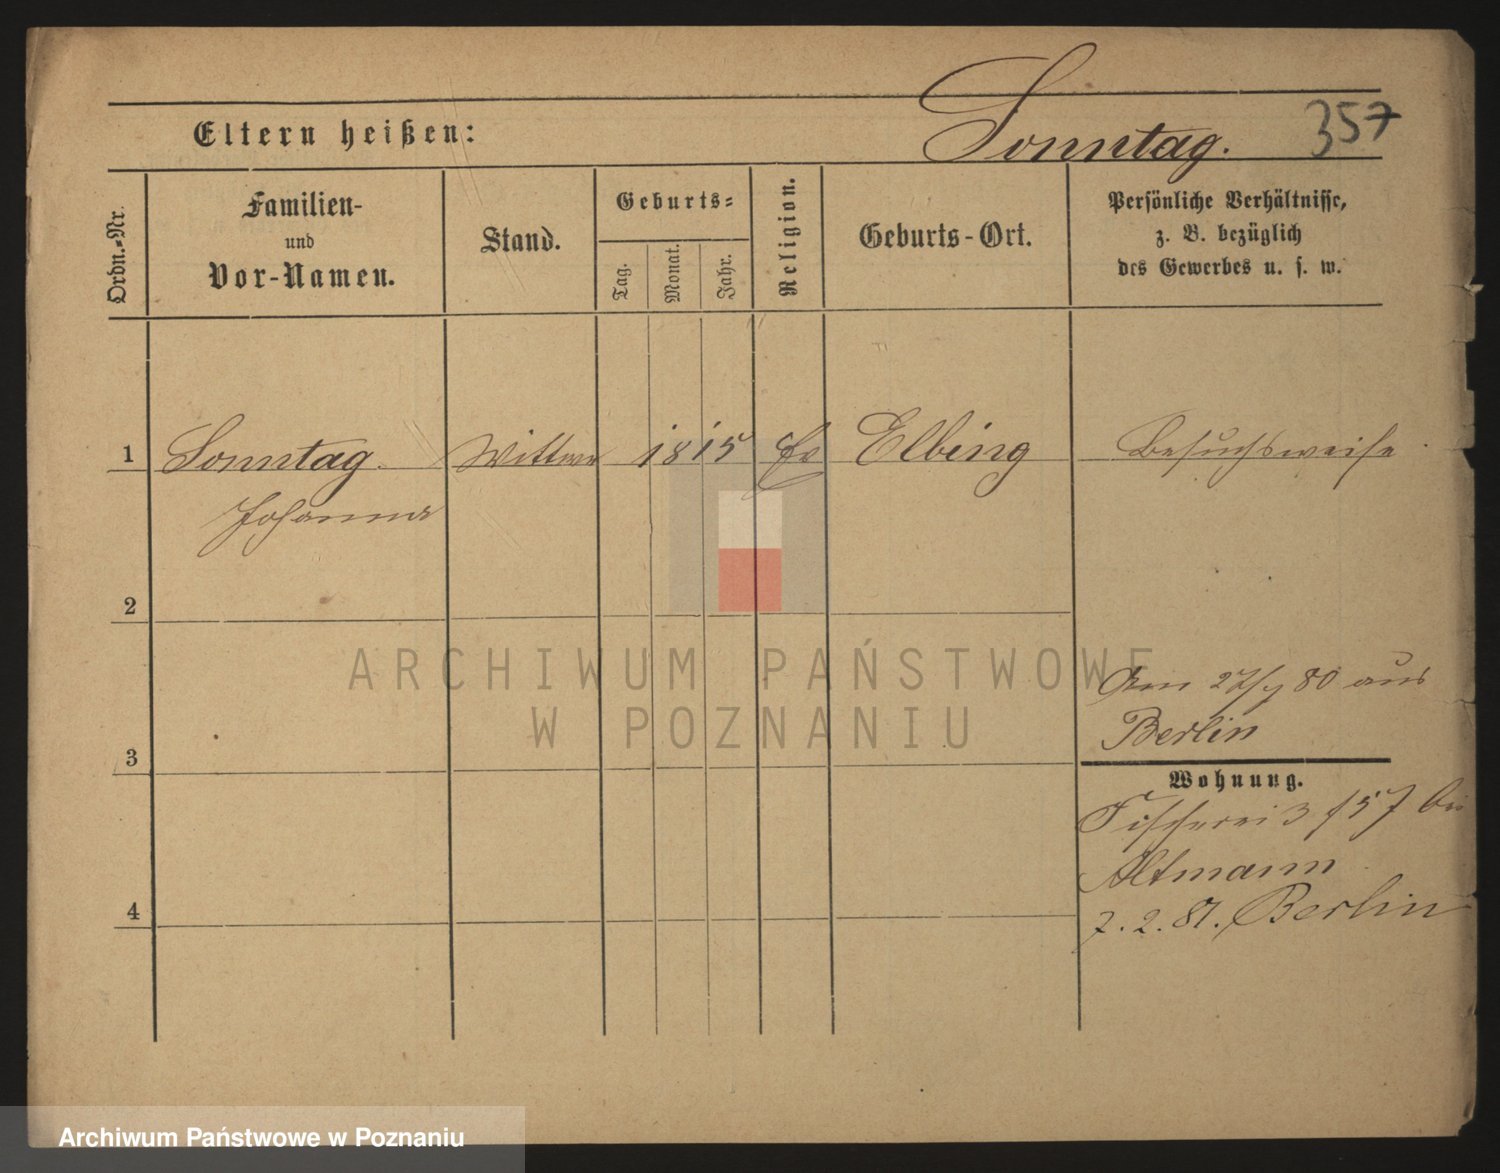 Eltern heißen:
Sonntag.
357
Ordn.-Nr.
Familien-
und
Vor-Namen.
Stand.
Geburts-
Tag.
Monat.
Jahr.
Religion.
Geburts-Ort.
Persönliche Verhältnisse,
z. B. bezüglich
des Gewerbes u. s. w.
1 Sonntag Wittwe 1815 Ev Elbing Besuchsweise
Johanna
2
ARCHIWUM PAŃSTWOWE
W POZNANIU
Am 27/7 80 aus
Berlin
3
Wohnung.
Fischerei 3 bei
Altmann
4
7. 2. 81. Berlin
Archiwum Państwowe w Poznaniu